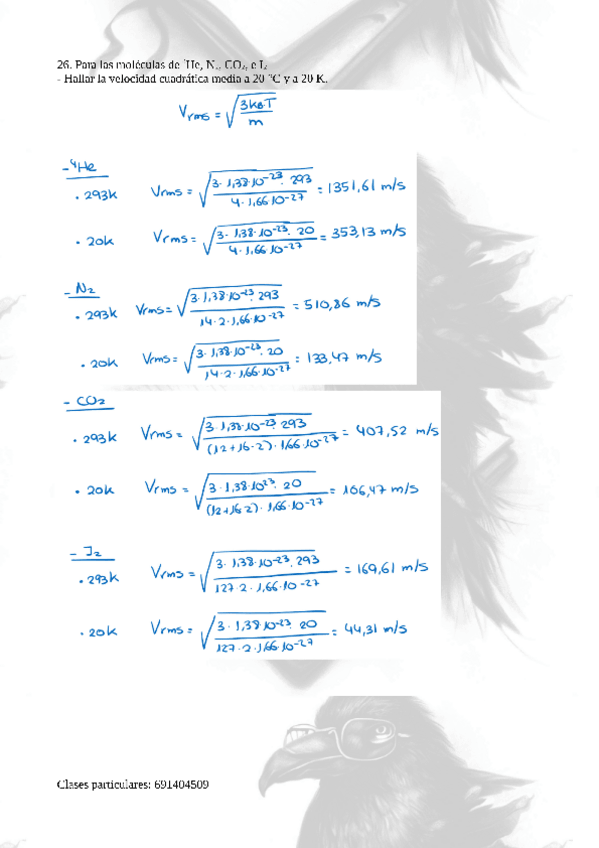 26. Para las moléculas de ⁴He, N₂, CO₂, e I₂
- Hallar la velocidad cuadrática media a 20 °C y a 20 K.
Vrms = √(3kBT / m)
- ⁴He
· 293k Vrms = √(3 · 1,38·10⁻²³ · 293 / 4 · 1,66·10⁻²⁷) = 1351,61 m/s
· 20k Vrms = √(3 · 1,38·10⁻²³ · 20 / 4 · 1,66·10⁻²⁷) = 353,13 m/s
- N₂
· 293k Vrms = √(3 · 1,38·10⁻²³ · 293 / 14 · 2 · 1,66·10⁻²⁷) = 510,86 m/s
· 20k Vrms = √(3 · 1,38·10⁻²³ · 20 / 14 · 2 · 1,66·10⁻²⁷) = 133,47 m/s
- CO₂
· 293k Vrms = √(3 · 1,38·10⁻²³ · 293 / (12+16·2) · 1,66·10⁻²⁷) = 407,52 m/s
· 20k Vrms = √(3 · 1,38·10²³ · 20 / (12+16·2) · 1,66·10⁻²⁷) = 106,47 m/s
- I₂
· 293k Vrms = √(3 · 1,38·10⁻²³ · 293 / 127 · 2 · 1,66·10⁻²⁷) = 169,61 m/s
· 20k Vrms = √(3 · 1,38·10⁻²³ · 20 / 127 · 2 · 1,66·10⁻²⁷) = 44,31 m/s
Clases particulares: 691404509